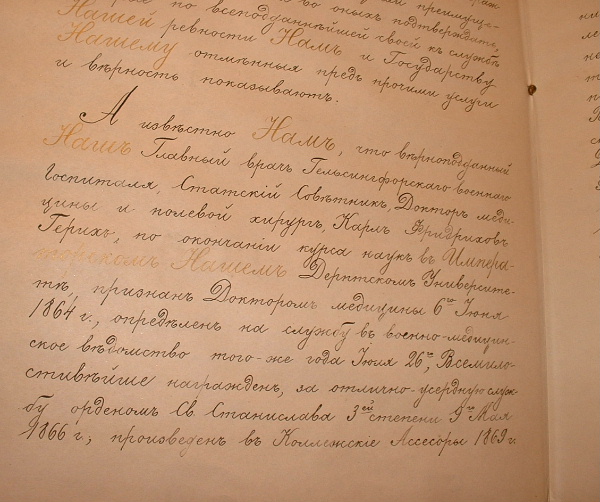 по всеподданнѣйшей своей къ службѣ
Нашей ревности Намъ и Государству
Нашему отмѣнныя предъ прочими услуги
и вѣрность показываютъ.
А извѣстно Намъ, что вѣрноподданный
Нашъ Главный врачъ Гельсингфорскаго военнаго
госпиталя, Статскій Совѣтникъ, Докторъ меди-
цины и полевой хирургъ, Карлъ Фридриховъ
Герихъ, по окончаніи курса наукъ въ Импера-
торскомъ Нашемъ Дерптскомъ Университе-
тѣ, признанъ Докторомъ медицины 6го Іюня
1864 г., опредѣленъ на службу въ военно-медицин-
ское вѣдомство того-же года Іюля 26го, Всемило-
стивѣйше награжденъ, за отлично-усердную служ-
бу орденомъ Св. Станислава 3ей степени 9го Мая
1866 г.; произведенъ въ Коллежскіе Ассесоры 1869 г.